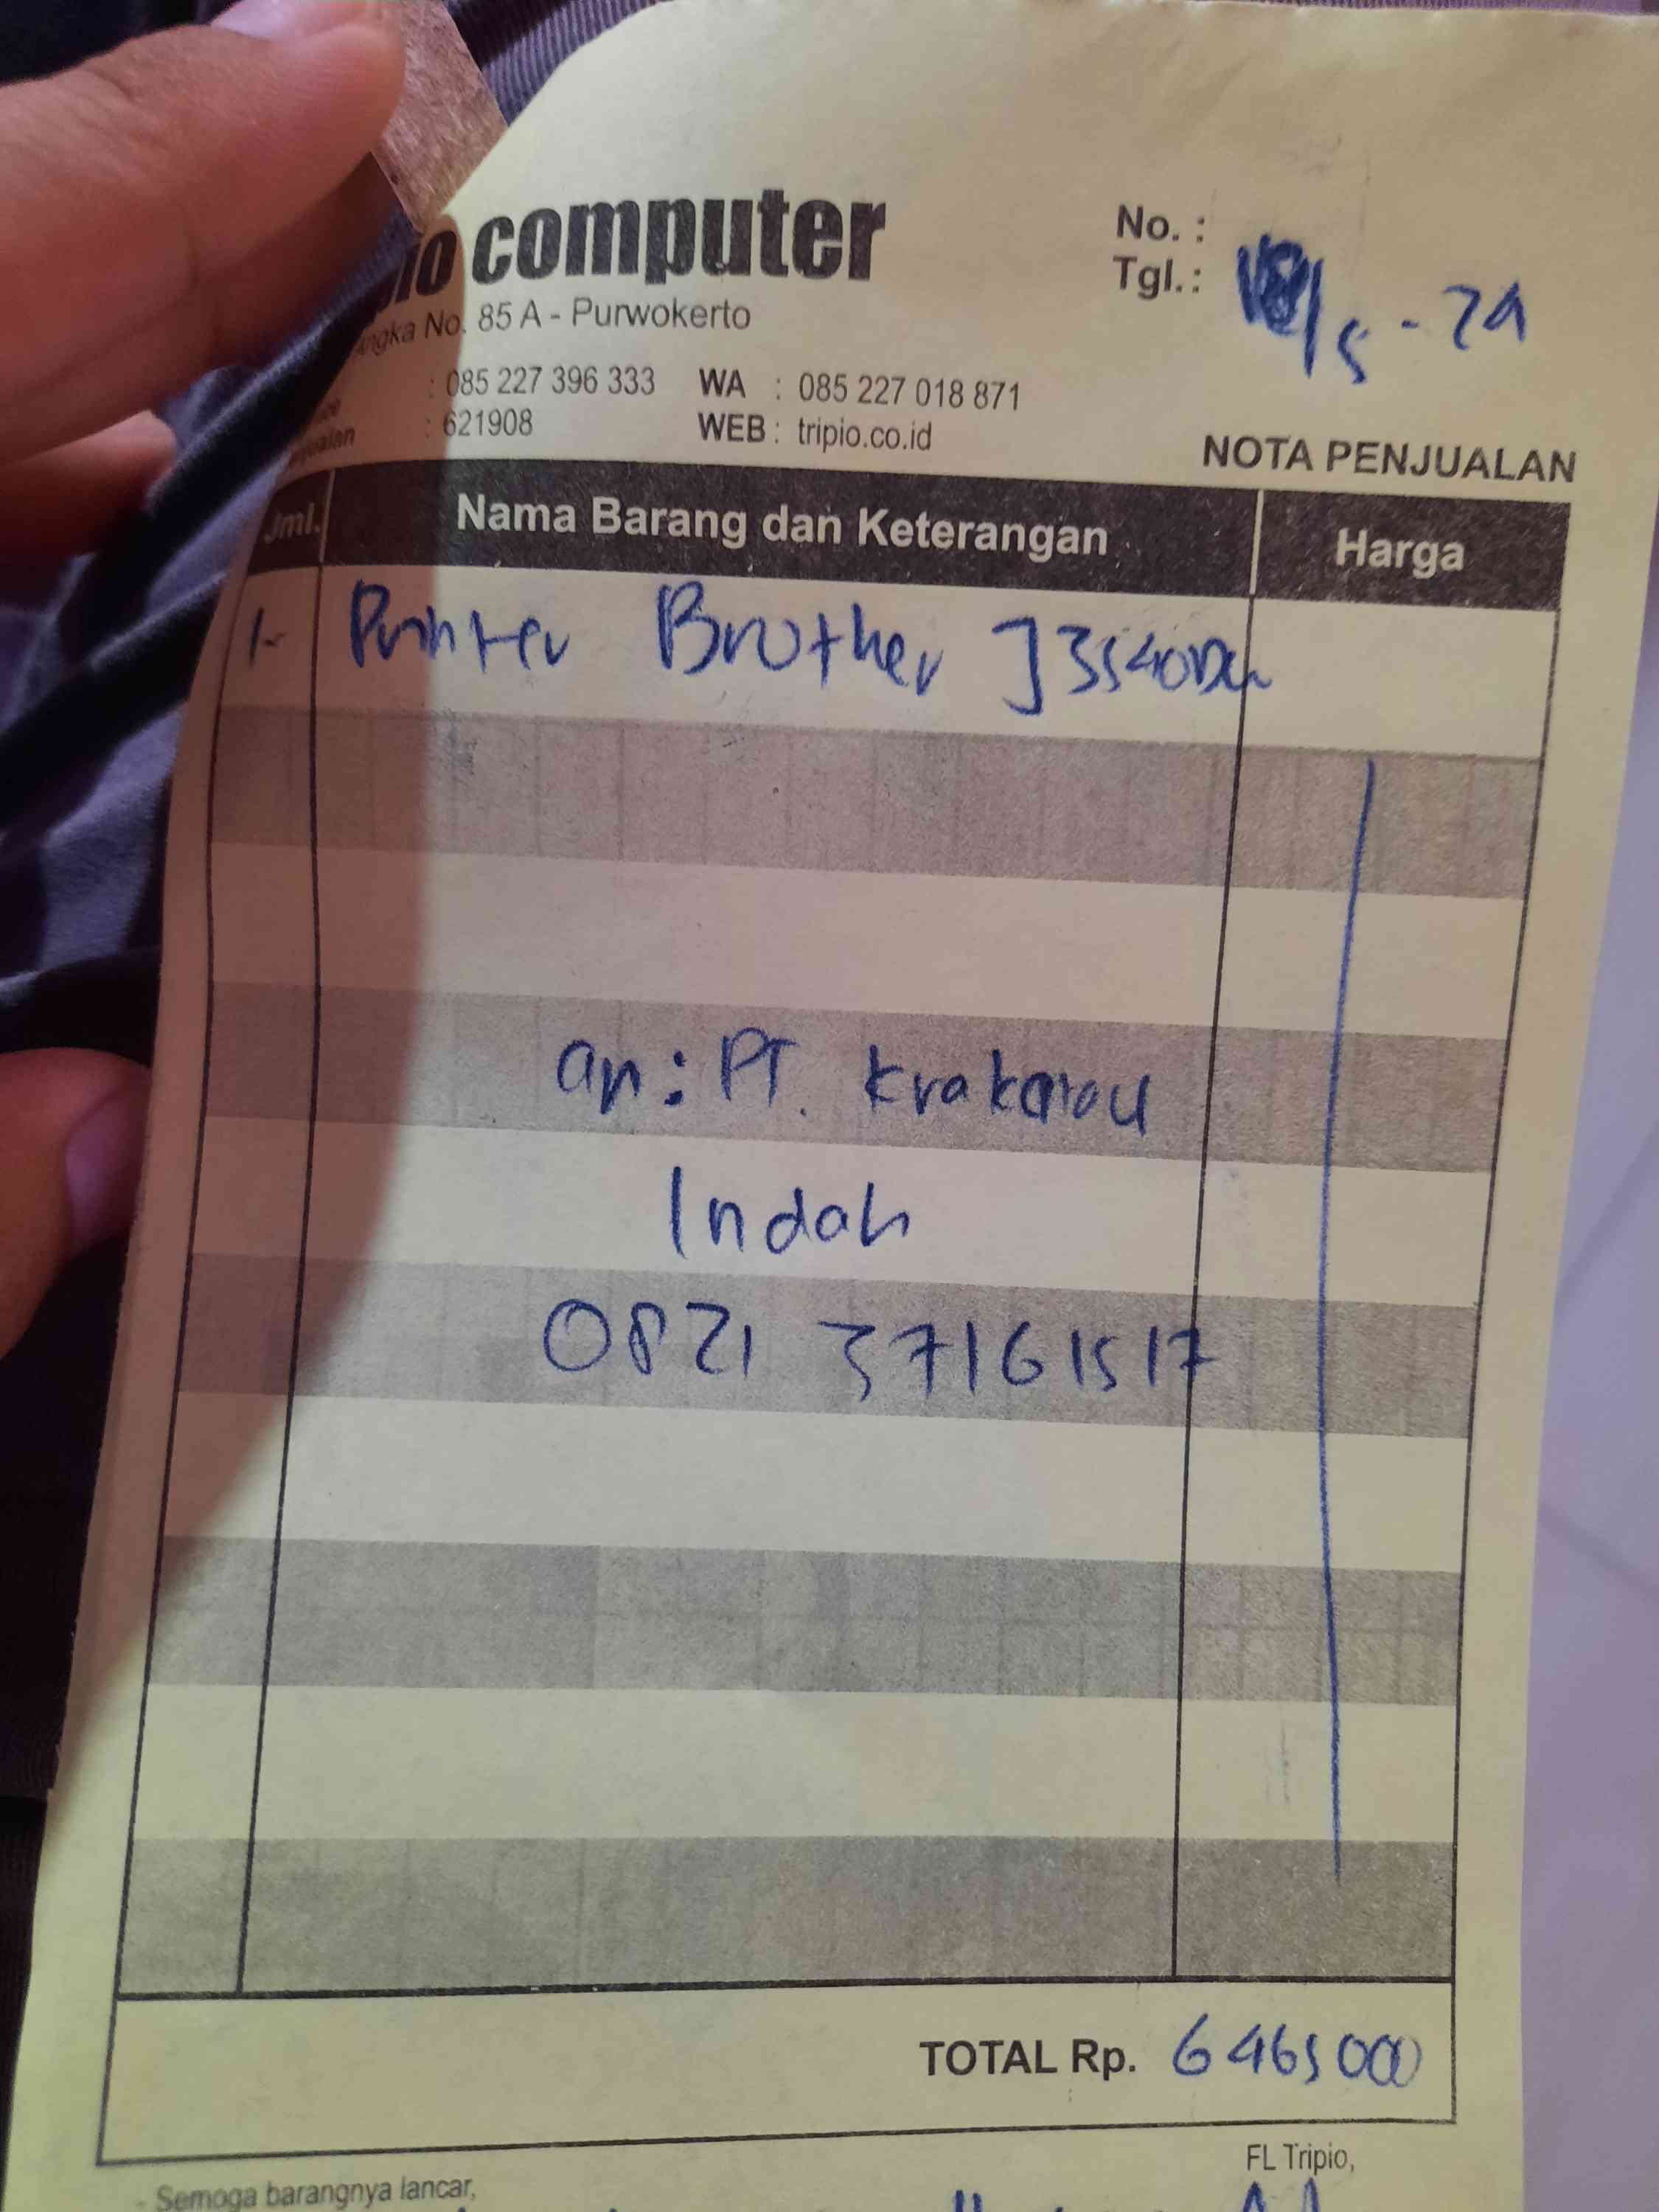 computer
No. :
Tgl.: 18/5 - 24
No. 85 A - Purwokerto
: 085 227 396 333 WA : 085 227 018 871
: 621908 WEB : tripio.co.id
NOTA PENJUALAN
Jml. Nama Barang dan Keterangan Harga
1- Printer Brother J3540DW
an: PT. Krakatau
Indah
0821 37161517
TOTAL Rp. 6465000
FL Tripio,
- Semoga barangnya lancar,